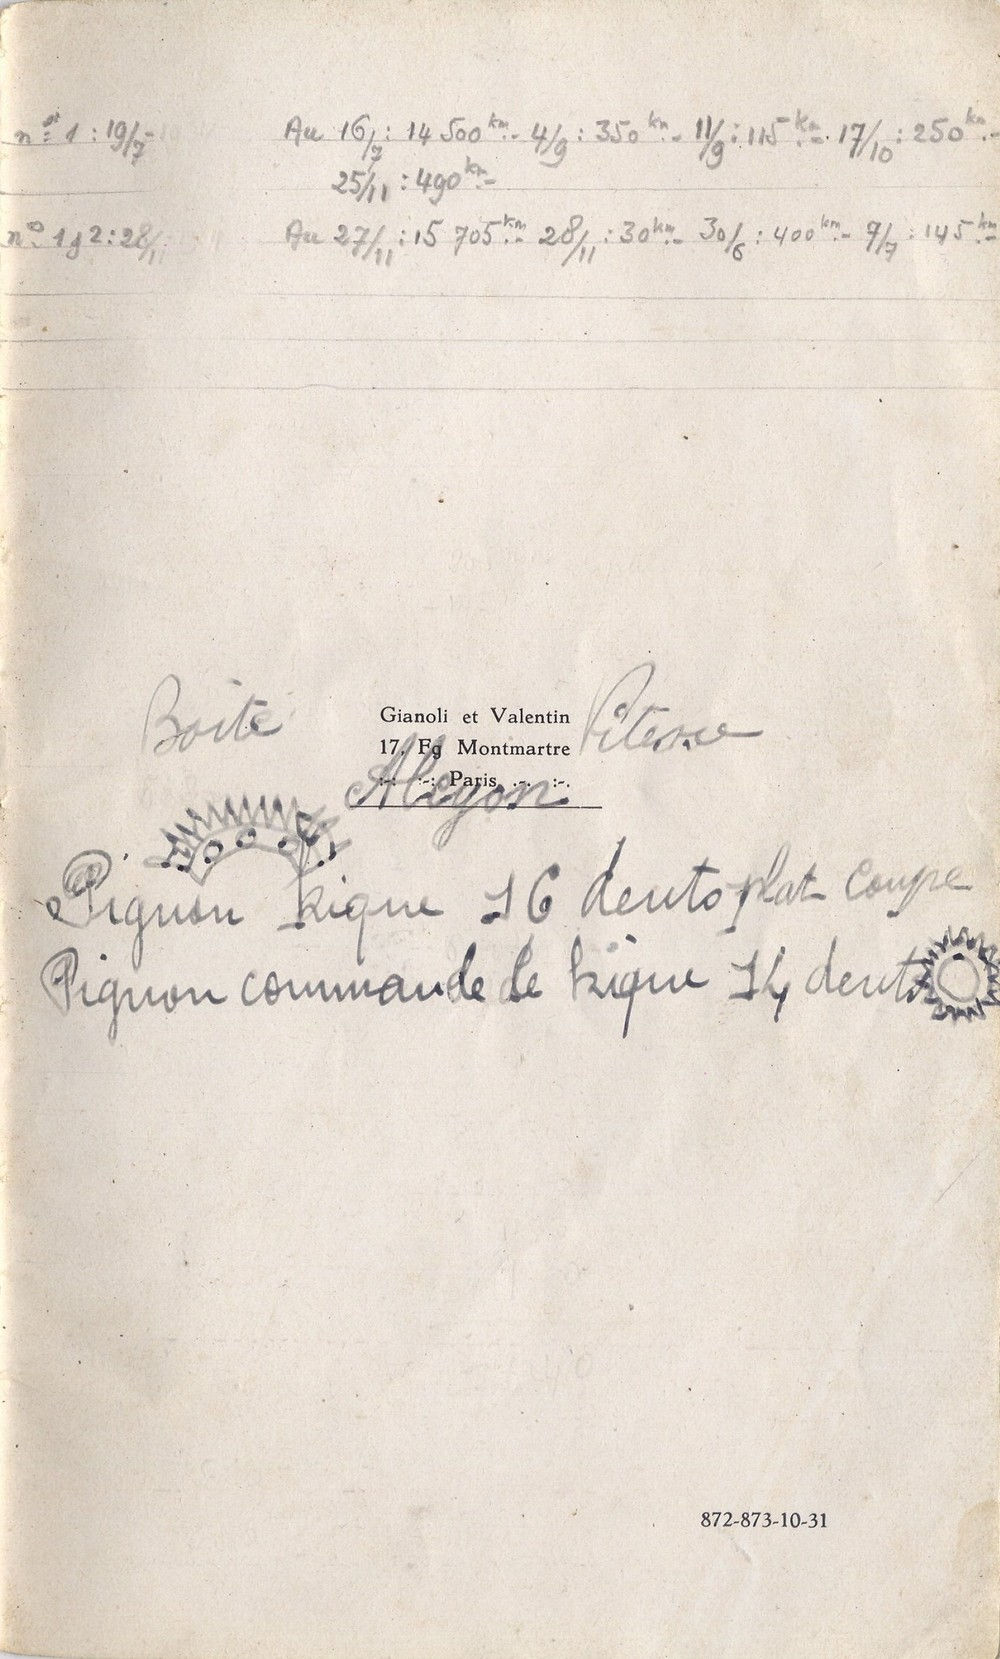 n° 1 : 19/7 Au 16/7 : 14 500 km.- 4/9 : 350 km.- 11/9 : 115 km.- 17/10 : 250 km.-
25/11 : 490 km.-
n° 1 g 2 : 28/11 Au 27/11 : 15 705 km.- 28/11 : 30 km.- 30/6 : 400 km.- 9/7 : 145 km.-
Boite Vitesse
Gianoli et Valentin
17, Fg Montmartre
:-: :-: Paris .-. :-.
Alcyon
Pignon kique 16 dents plat coupe
Pignon commande de kique 14 dents
872-873-10-31